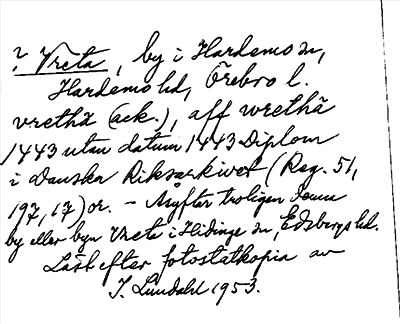 ? Vreta, by i Hardemo sn,
Hardemo hd, Örebro l.
vrethā (ack.), aff wrethā
1443 utan datum 1443 Diplom
i Danska Riksarkivet (Reg. 51,
197, 17) or. – Åsyftar troligen denna
by eller byn Vreta i Hidinge sn, Edsbergs hd.
Läst efter fotostatkopia av
I. Lundahl 1953.